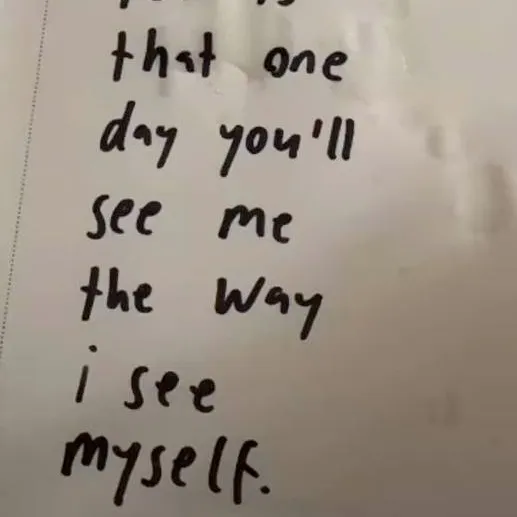 that one
day you'll
see me
the way
i see
myself.